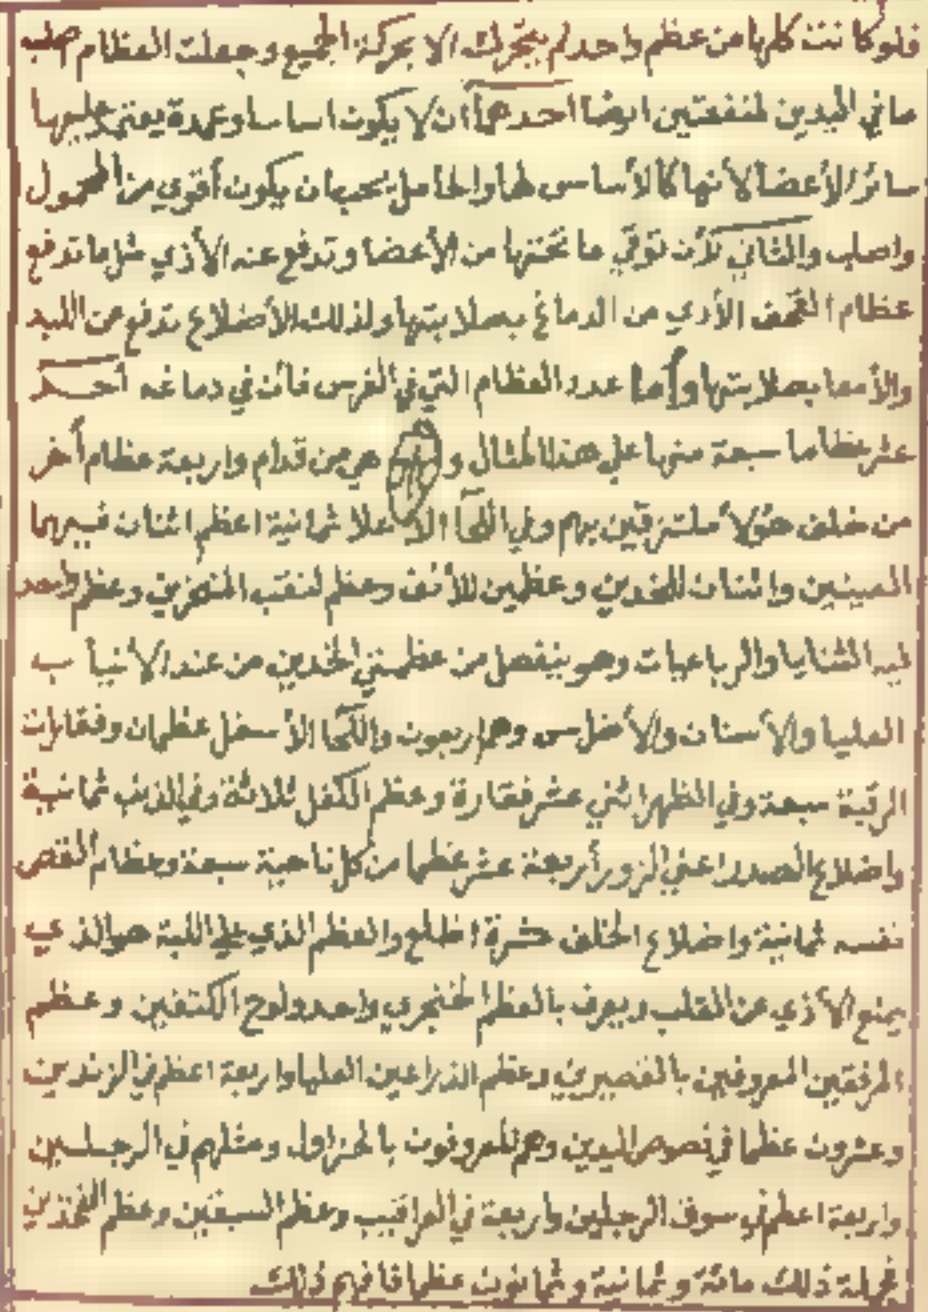 فلو كانت كلها من عظم واحد لم يتحرك الا بحركة الجميع وجعلت العظام صلبه
ما في اليدين لمنفعتين ايضا احدهما ان لا يكون اساسا وعمدة يعتمد عليها
سائر الأعضا لأنها كالأساس لها والحامل يجب ان يكون أقوي من المحمول
واصلب والثاني لأن توقي ما تحتها من الأعضا وتدفع عنه الأذي مثل ما تدفع
عظام القحف الأذي عن الدماغ بصلابتها ولذلك الأضلاع تدفع عن اللبد
والأمعا بصلابتها وأما عدد العظام التي في الفرس فأن في دماغه أحد
عشر عظاما سبعة منها علي هذا المثال و هي من قدام واربعة عظام أخر
من خلف هؤلا ملتزقين بهم وفي اللحا الاعلا ثمانية اعظم اثنان فيهما
العينين واثنان للخدين وعظمين للأنف وعظم لنقب المنخرين وعظم واحد
فيه الثنايا والرباعيات وهو ينفصل من عظمتي الخدين من عند الأنياب
العليا والأسنان والأضراس وهم اربعون واللحا الأسفل عظمان وفقارات
الرقبة سبعة وفي الظهر اثني عشر فقارة وعظم الكفل ثلاثة وفي الذنب ثمانية
واضلاع الصدر اعني الزور أربعة عشر عظما من كل ناحية سبعة وعظام القص
نفسه ثمانية واضلاع الخلف عشرة اضلع والعظم الذي علي اللبة هو الذي
يمنع الأذي عن القلب ويعرف بالعظم الخنجري واحد ولوح الكتفين وعظم
المرفقين المعروفين بالقصيرين وعظم الذراعين العليا واربعة اعظم في الزندين
وعشرون عظما في فصوص اليدين وهم المعروفون بالخزاول ومثلهم في الرجلين
واربعة اعظم في سوق الرجلين واربعة في العراقيب وعظم السبقين وعظم الفخذين
فجملة ذلك مائة وثمانية وثمانون عظما فافهم ذلك